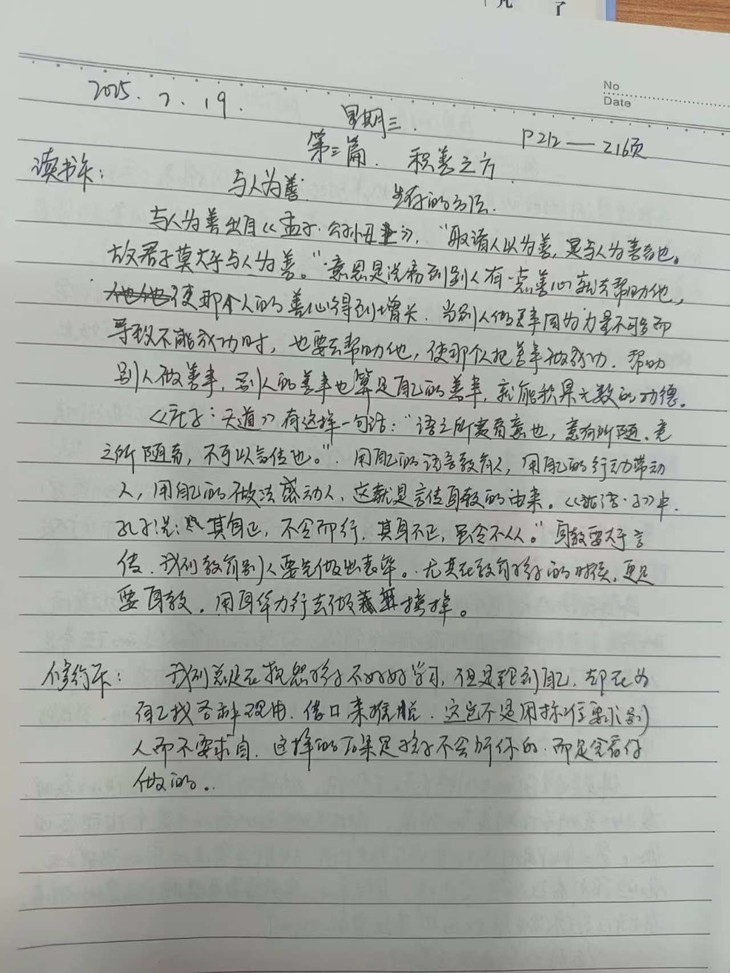 凡 了
No
Date
2025. 7. 19. 星期三. P212——216页
第三篇. 积善之方
读书卡: 与人为善
与人为善出自《孟子·公孙丑上》,“取诸人以为善,是与人为善者也。
故君子莫大乎与人为善。”意思是说看到别人有一点善心就去帮助他,
使那个人的善心得到增长. 当别人做善事因为力量不够而
导致不能成功时, 也要去帮助他, 使那个人把善事做成功. 帮助
别人做善事, 别人的善事也算是自己的善事, 就能积累无数的功德。
《庄子:天道》有这样一句话:“语之所贵者意也, 意有所随. 意
之所随者, 不可以言传也。”. 用自己的语言教育人, 用自己的行动带动
人, 用自己的做法感动人. 这就是言传身教的由来。《论语·子》中.
孔子说: 其身正, 不令而行. 其身不正, 虽令不从。”身教要大于言
传. 我们教育别人要先做出表率。. 尤其在教育孩子的时候, 更是
要身教. 用身体力行去做榜样。
修行卡: 我们总是在抱怨孩子不好好学习, 但是轮到自己. 却在为
自己找各种理由. 借口来推脱. 这岂不是用标准要求别
人而不要求自. 这样的后果是孩子不会听你的. 而是会看你
做的。.